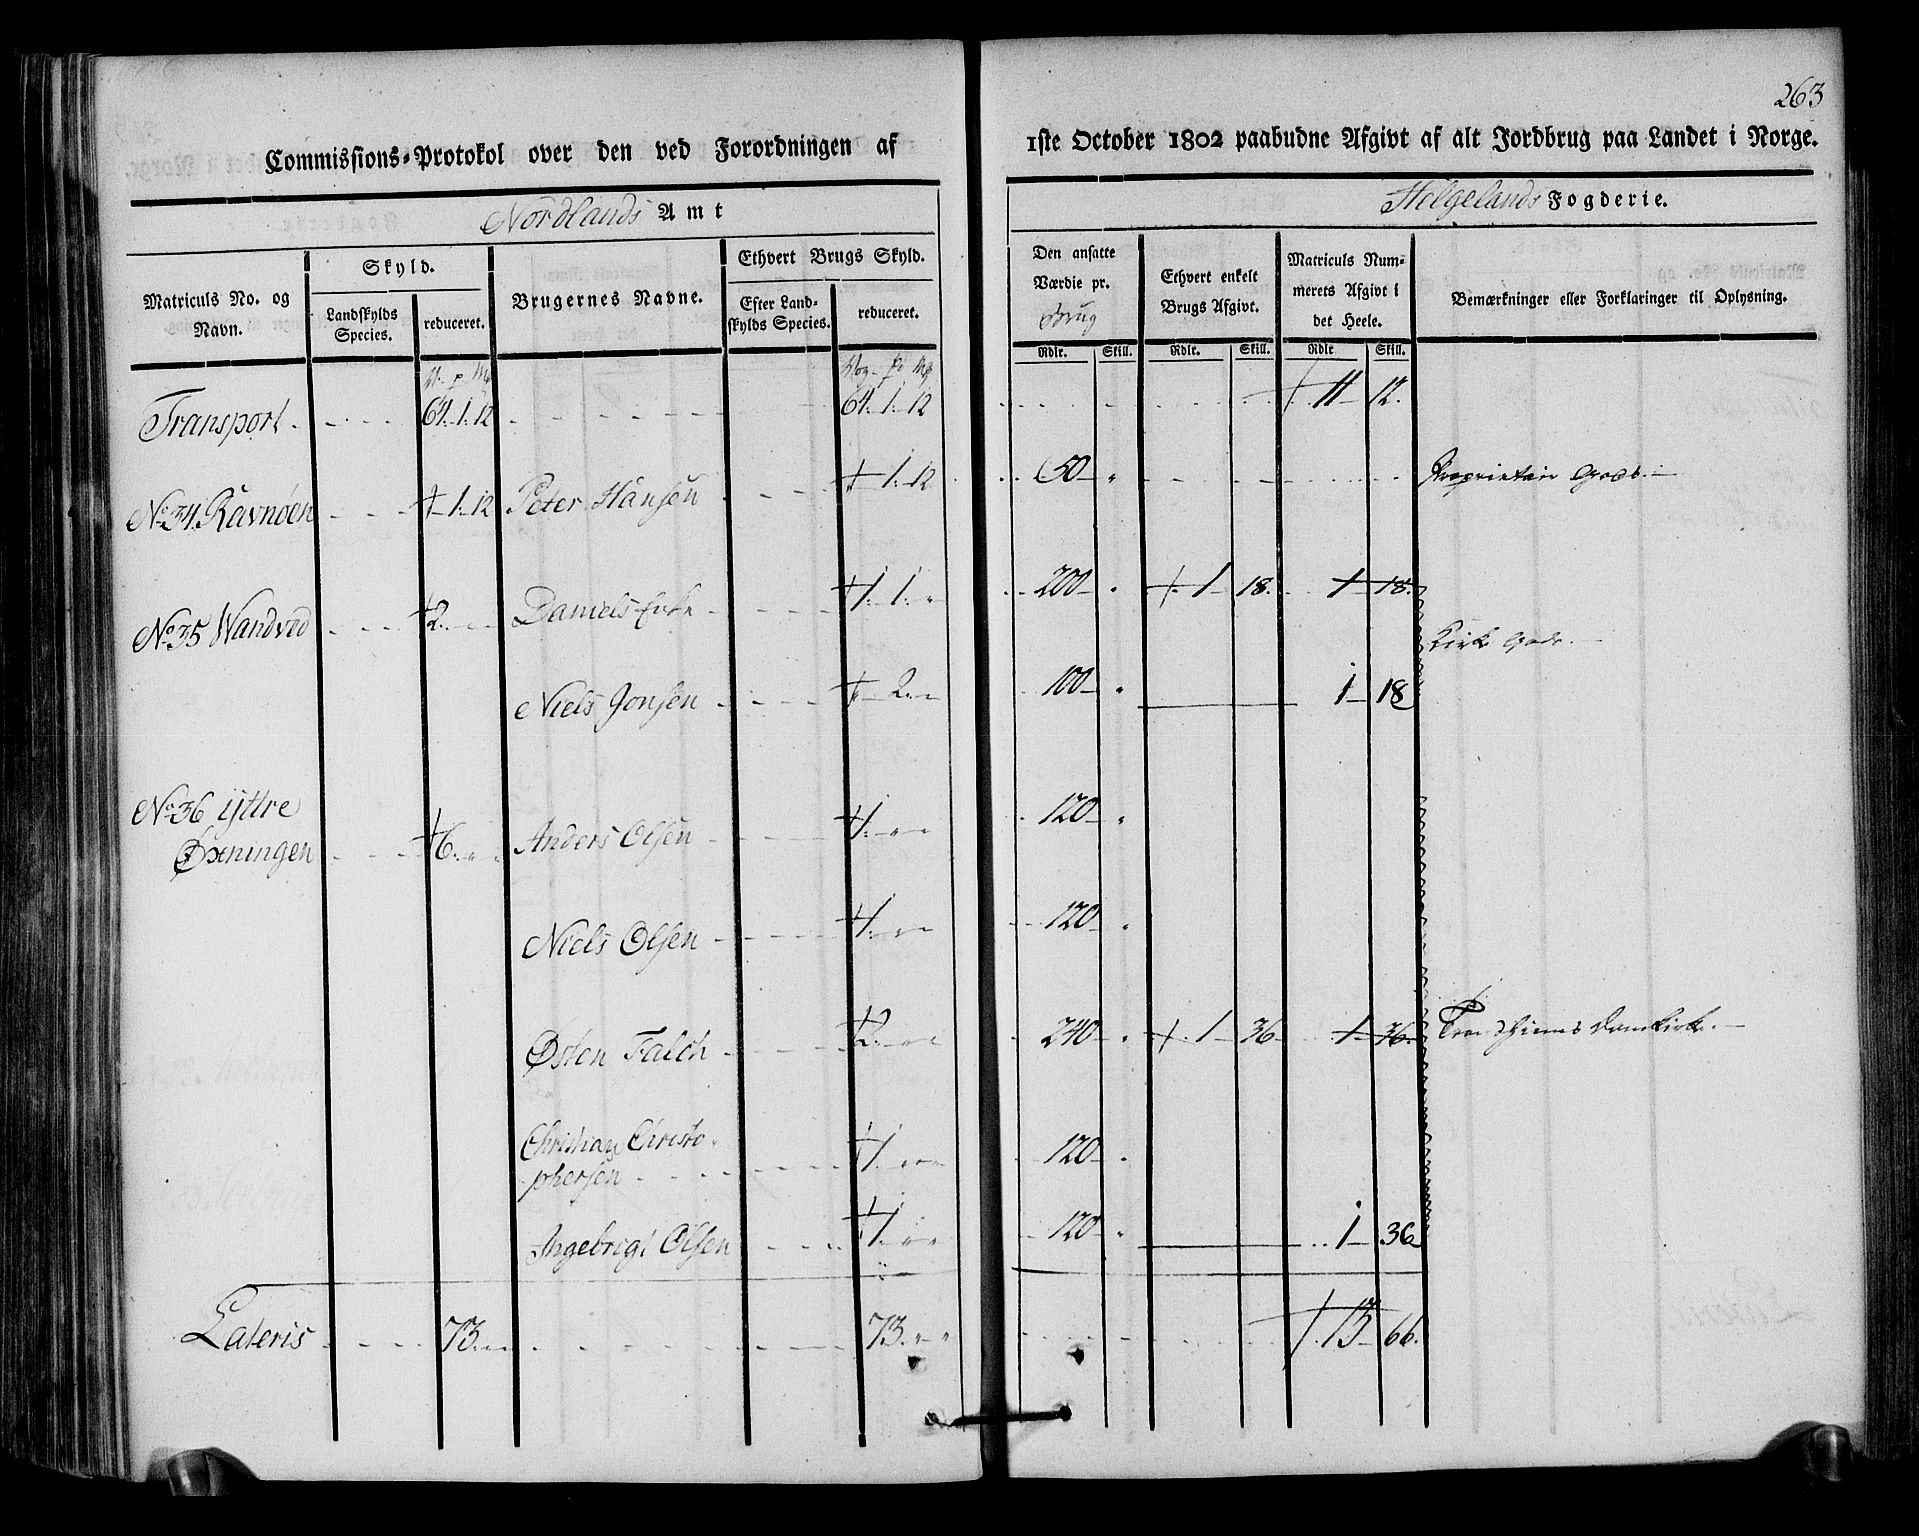 263
Commissions-Protokol over den ved Forordningen af 1ste October 1802 paabudne Afgivt af alt Jordbrug paa Landet i Norge.
Nordlands Amt Helgelands Fogderie.
Matriculs No. og Navn. Skyld. Landskylds Species. reduceret. Brugernes Navne. Ethvert Brugs Skyld. Efter Landskylds Species. reduceret. Den ansatte Værdie pr. Brug Ethvert enkelt Brugs Afgivt. Matriculs Nummerets Afgivt i det Heele. Bemærkninger eller Forklaringer til Oplysning.
Rdlr. Skill. Rdlr. Skill. Rdlr Skill.
Transport 64. 1. 12 64. 1. 12 11 12.
No 34. Ravnöen 1. 12 Peter Hansen 1. 12 60 Proprietair Gods.
No 35 Wandved 2. Daniels Enke 1. 1. 200 1 18. 1 18.
Kirke Gods.
Niels Jonsen 2. 100 1 18
No 36 ijttre
Øxningen 6. Anders Olsen 1. 120
Niels Olsen 1. 120
Østen Falch 2. 240 1 36 1 36. Trondhiems Domkirke.
Christian Christo
phersen 1. 120
Ingebrigt Olsen 1. 120 1 36
Lateris 73. 73. 13 66.